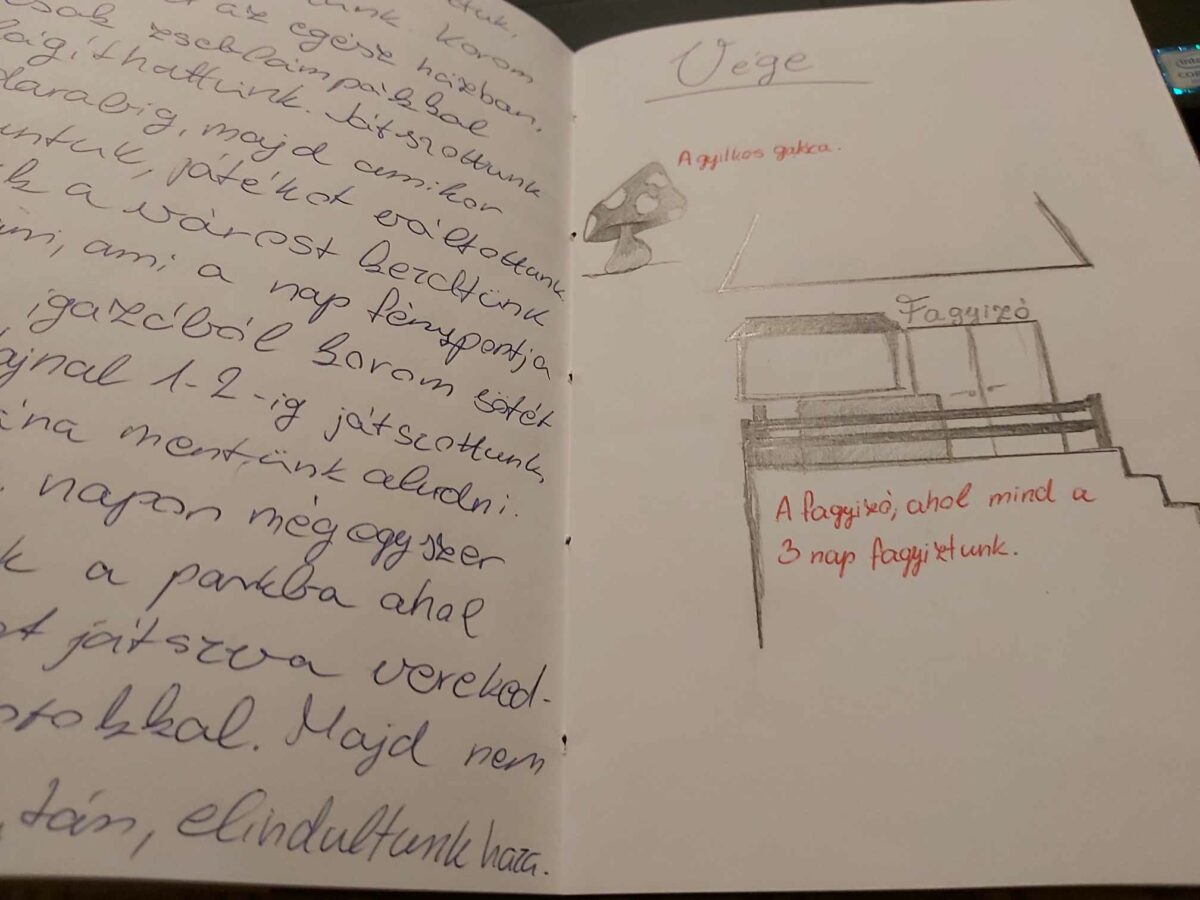 Korom
az egész házban,
csak zseblámpákkal
lágíthattunk. Játszottunk
darabig, majd amikor
untuk, játékot váltottunk
k a várost kezdtünk
ami a nap fénypontja
igazából korom sötét
ajnal 1-2-ig játszottunk,
ána mentünk aludni.
napon mégegyszer
k a parkba ahol
ot játszva vereked-
otokkal. Majd nem
tán, elindultunk haza.
Vége
A gyilkos
Fagyizó
A fagyizó, ahol mind a
3 nap fagyiztunk.